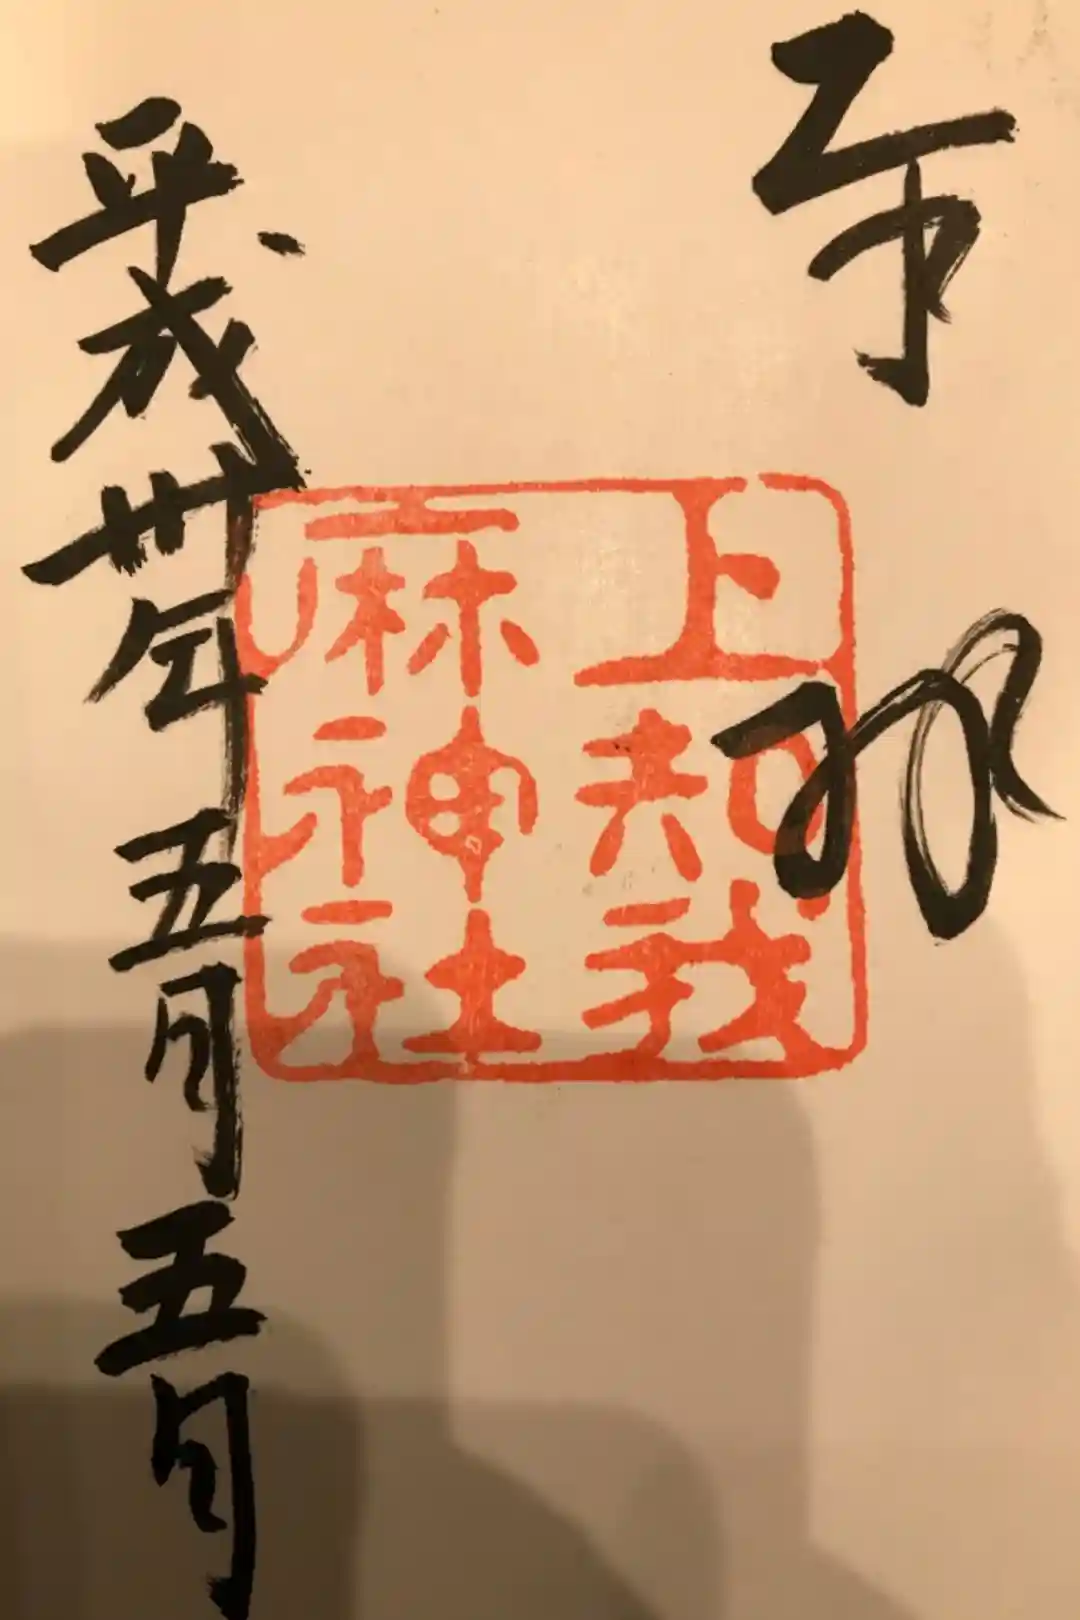 奉拝
上知我
麻神社
平成卅年五月五日